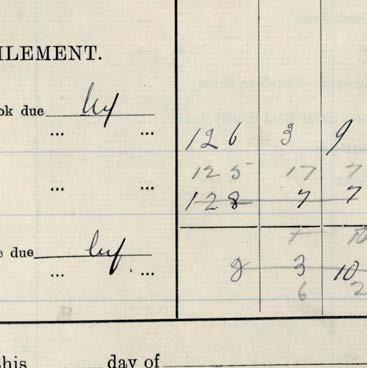 ILEMENT.
ok due
... ...
126 3 9
125 17 7
... ...
128 7 7
7 10
e due
8 3 10
... ...
6 2
this day of